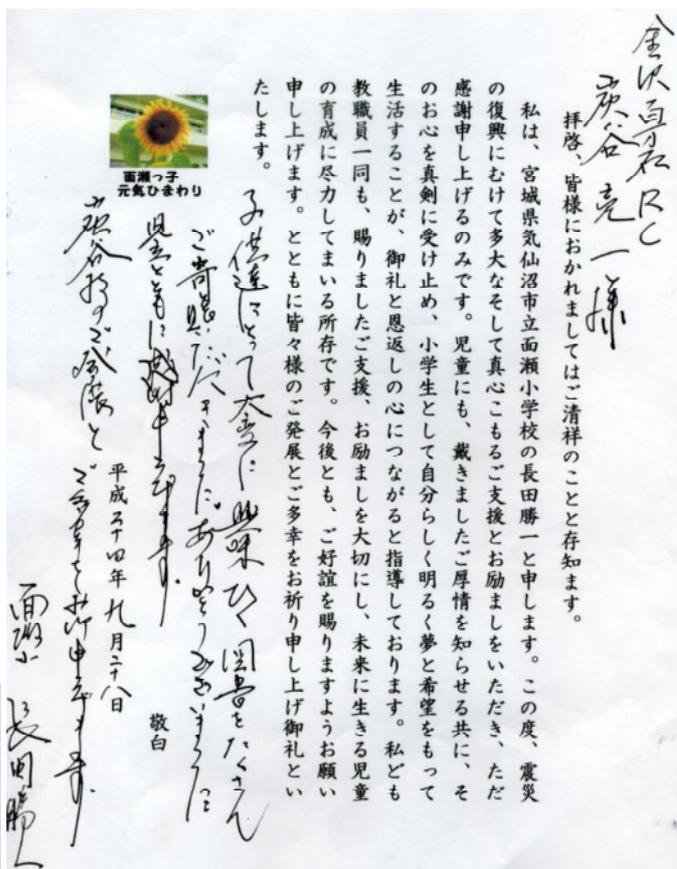 金沢百万石RC
炭谷亮一様
拝啓、皆様におかれましてはご清祥のことと存知ます。
私は、宮城県気仙沼市立面瀬小学校の長田勝一と申します。この度、震災
の復興にむけて多大なそして真心こもるご支援とお励ましをいただき、ただ
感謝申し上げるのみです。児童にも、戴きましたご厚情を知らせる共に、そ
のお心を真剣に受け止め、小学生として自分らしく明るく夢と希望をもって
生活することが、御礼と恩返しの心につながると指導しております。私ども
教職員一同も、賜りましたご支援、お励ましを大切にし、未来に生きる児童
の育成に尽力してまいる所存です。今後とも、ご好誼を賜りますようお願い
申し上げます。とともに皆々様のご発展とご多幸をお祈り申し上げ御礼とい
たします。
子供達にとって大変に興味ひく図書をたくさん
ご寄贈いただきました。ありがとうございました
児童とともに感謝申し上げます。
炭谷様のご発展と
ご多幸をお祈り申し上げます
敬白
平成二十四年九月二十八日
面瀬小 長田勝一
面瀬っ子
元気ひまわり